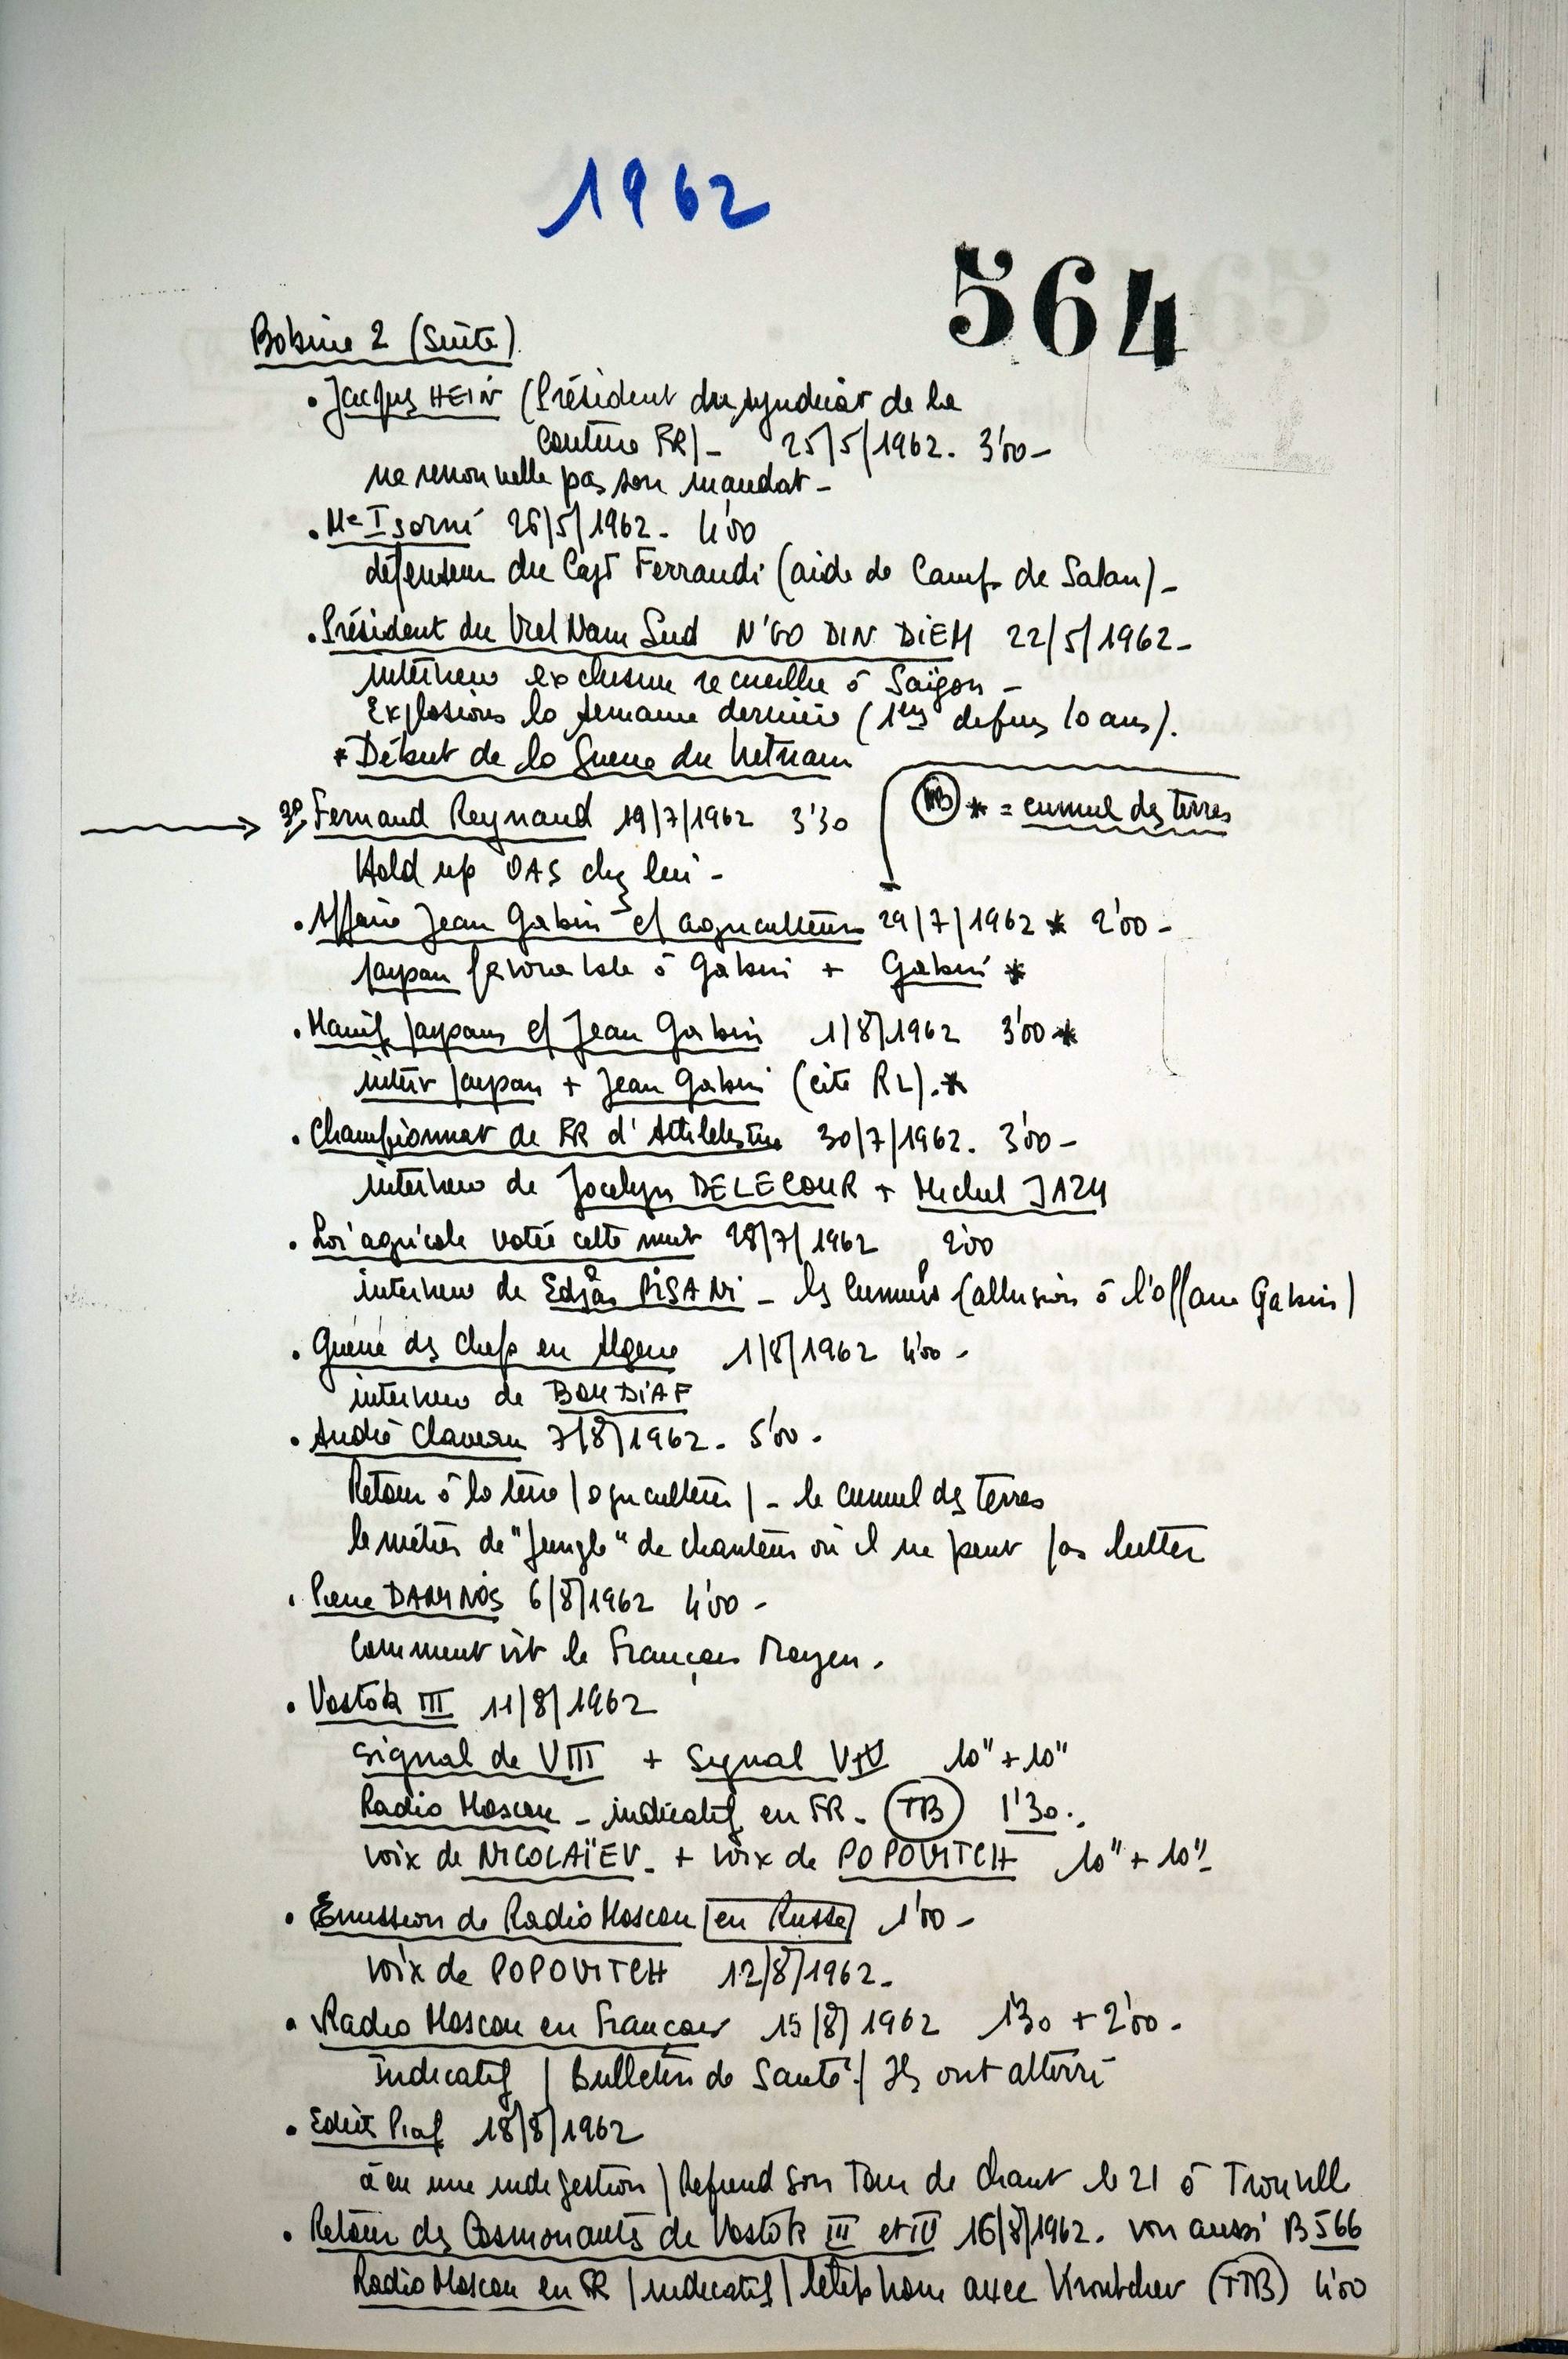 1962
564
Bobine 2 (Suite)
• Jacques HEIN (Président du syndicat de la
couture FR) - 25/5/1962. 3'00 -
ne renouvelle pas son mandat -
• Me Isorni 26/5/1962 - 4'00
défenseur du Capt Ferrandi (aide de Camp de Salan) -
• Président du Viet Nam Sud N'GO DIN DIEM 22/5/1962 -
interview exclusive recueillie à Saïgon -
Explosions la semaine dernière (1ères depuis 10 ans).
* Début de la Guerre du Vietnam
Fernand Reynaud 19/7/1962 3'30
NB * = cumul des terres
Hold up OAS chez lui -
• Affaire Jean Gabin c/ agriculteurs 29/7/1962 * 2'00 -
paysan favorable à Gabin + Gabin *
• Manif paysans c/ Jean Gabin 1/8/1962 3'00 *
interv paysan + Jean Gabin (cite RL). *
• Championnat de FR d'Athlétisme 30/7/1962. 3'00 -
interview de Jocelyn DELECOUR + Michel JAZY
• Loi agricole votée cette nuit 28/7/1962 2'00
interview de Edgar PISANI - les cumuls (allusion à l'affaire Gabin)
• Guerre des chefs en Algérie 1/8/1962 4'00 -
interview de BOUDIAF
• André Claveau 7/8/1962. 5'00 -
Retour à la terre (agriculteur) - le cumul des terres
le métier de "jungle" de chanteur où il ne peut pas lutter
• Pierre DANINOS 6/8/1962 4'00 -
Comment vit le Français Moyen.
• Vostok III 11/8/1962
signal de VIII + Signal VIV 10" + 10"
Radio Moscou - indicatif en FR - TB 1'30.
voix de NICOLAÏEV - + voix de POPOVITCH 10" + 10" -
• Emission de Radio Moscou en Russe 1'00 -
voix de POPOVITCH 12/8/1962 -
• Radio Moscou en Français 15/8/1962 1'30 + 2'00 -
indicatif / Bulletin de Santé / Ils ont atterri
• Edith Piaf 18/8/1962
a eu une indigestion / Reprend son Tour de Chant le 21 à Trouville
• Retour des Cosmonautes de Vostok III et IV 16/8/1962. voir aussi B566
Radio Moscou en FR / indicatif / téléphone avec Kroutchev (TTB) 4'00